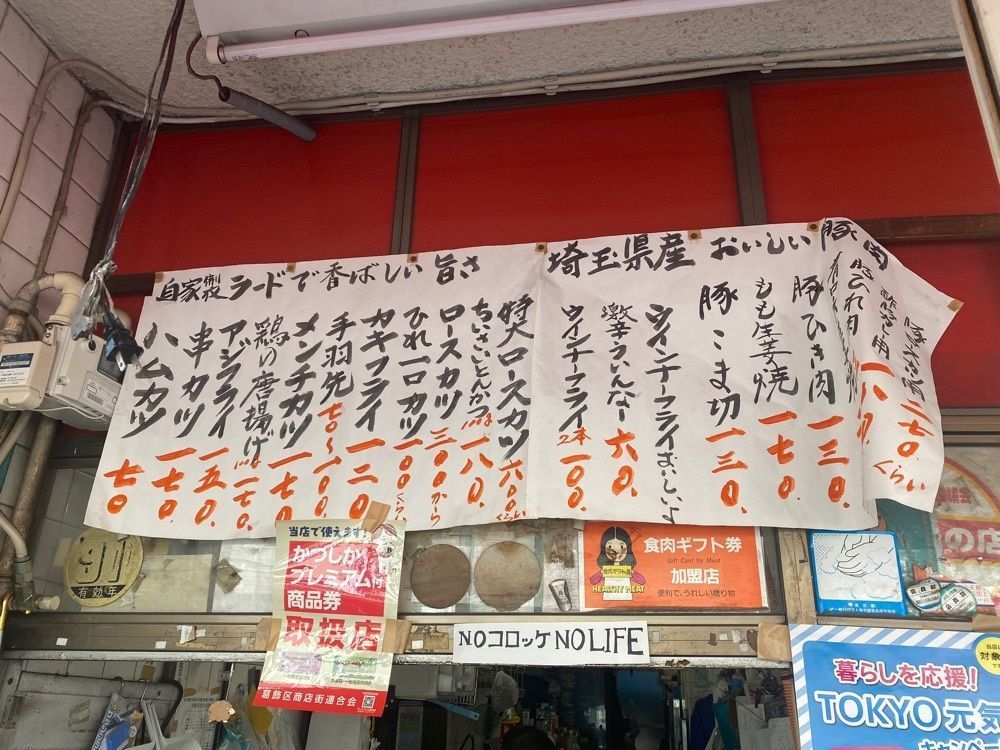 豚肉
埼玉県産 おいしい
豚ひき肉
一三〇.
もも生姜焼
一七〇.
豚こま切
一三〇.
ウインナーフライおいしいよ
激辛ういんなー
六〇.
ウインナーフライ
2本
一〇〇.
自家製ラードで香ばしい旨さ
特大ロースカツ
六〇〇くらい
ちいさいとんかつ
一八〇.
ロースカツ
三〇〇から
ひれ一口カツ
一〇〇くらい
カキフライ
一二〇
手羽先
七〇〜一〇〇
メンチカツ
一七〇
鶏の唐揚げ
一七〇
アジフライ
一五〇.
串カツ
一七〇.
ハムカツ
七〇
当店で使えます
かつしか
プレミアム付
商品券
取扱店
葛飾区商店街連合会
'91
有効年
食肉ギフト券
Gift Card for Meat
加盟店
便利で、うれしい贈り物
HEALTHY MEAT
NOコロッケ NO LIFE
暮らしを応援!
TOKYO元気
キャンペー